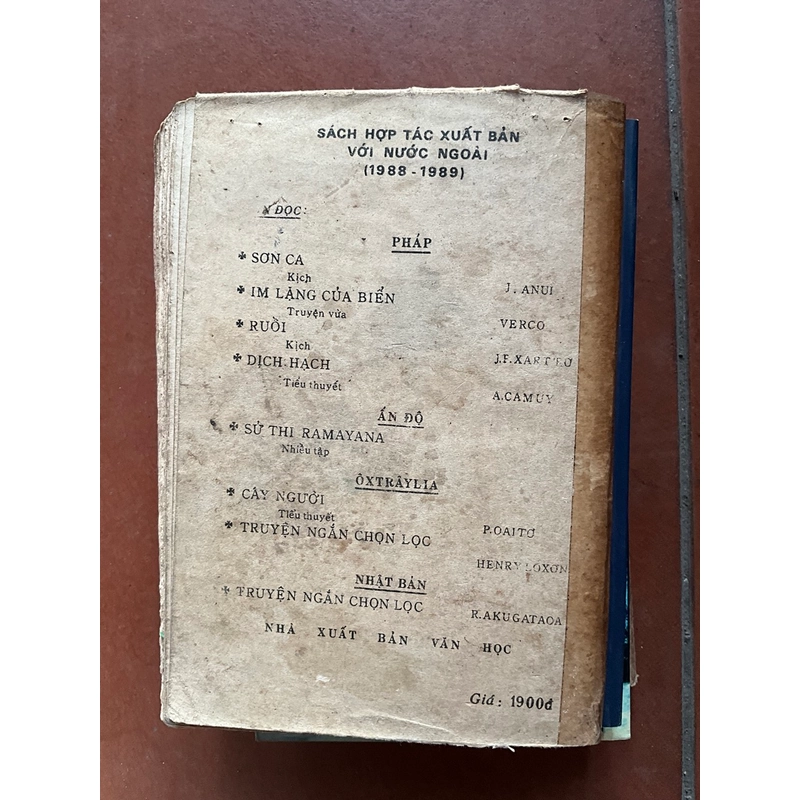 SÁCH HỢP TÁC XUẤT BẢN
VỚI NƯỚC NGOÀI
(1988 - 1989)
N ĐỌC:
PHÁP
✠ SƠN CA
Kịch
J. ANUI
✠ IM LẶNG CỦA BIỂN
Truyện vừa
VERCO
✠ RUỒI
Kịch
J.F.XARTƠ
✠ DỊCH HẠCH
Tiểu thuyết
A.CAMUY
ẤN ĐỘ
✠ SỬ THI RAMAYANA
Nhiều tập
ÔXTRÂYLIA
✠ CÂY NGƯỜI
Tiểu thuyết
P.OAITƠ
✠ TRUYỆN NGẮN CHỌN LỌC
HENRY LOXƠN
NHẬT BẢN
✠ TRUYỆN NGẮN CHỌN LỌC
R.AKUGATAOA
NHÀ XUẤT BẢN VĂN HỌC
Giá : 1900đ